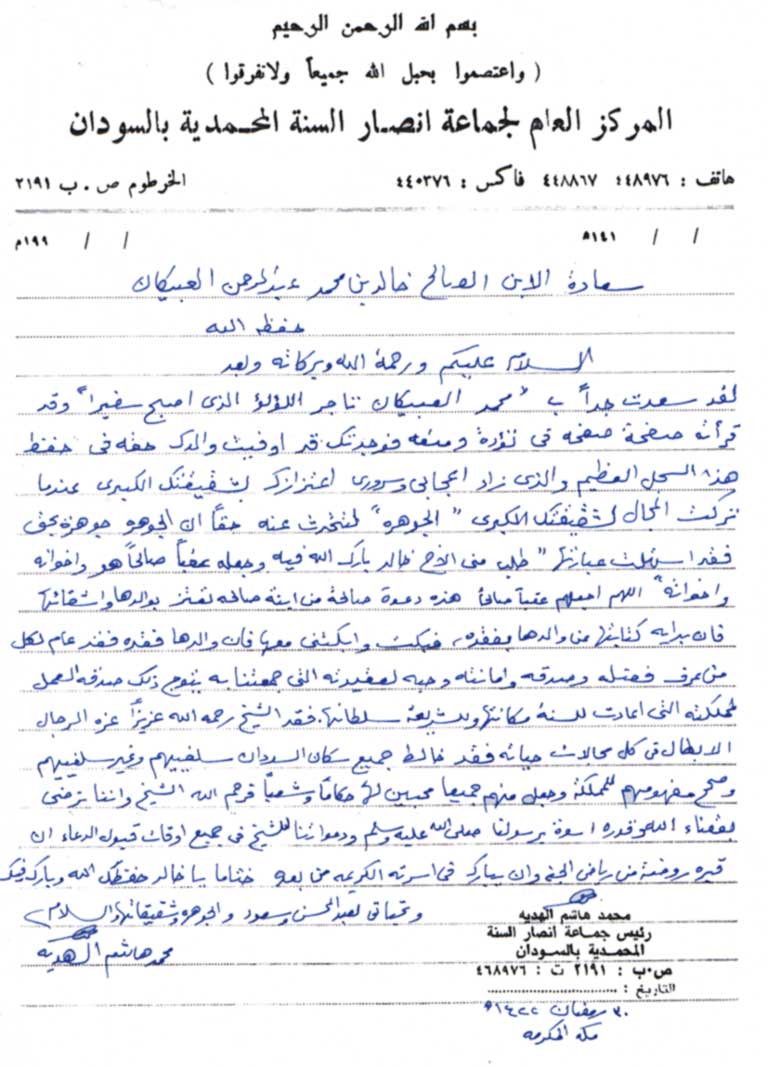 بسم الله الرحمن الرحيم
( واعتصموا بحبل الله جميعاً ولاتفرقوا )
المركز العام لجماعة انصار السنة المحمدية بالسودان
هاتف : ٤٤٨٩٧٦ ٤٤٨٨٦٧ فاكس : ٤٤٠٣٧٦ الخرطوم ص . ب ٢١٩١
/ / ١٤١هـ / / ١٩٩م
سعادة الابن الصالح خالد بن محمد عبدالرحمن العبيكان
حفظه الله
السلام عليكم ورحمة الله وبركاته وبعد
لقد سعدت جداً ب "محمد العبيكان تاجر اللؤلؤ الذى اصبح سفيراً" وقد
قرأته صفحة صفحة فى تؤدة ومتعه فوجدتك قد اوفيت والدك حقه فى حفظ
هذا السجل العظيم والذى زاد اعجابى وسرورى اعتزازك بشقيقتك الكبرى عندما
تركت المجال لشقيقتك الكبرى "الجوهره" لتتحدث عنه حقاً ان الجوهره جوهرة بحق
فقد استهلت عبارتها "طلب منى الاخ خالد بارك الله فيه وجعله عقباً صالحاً هو واخوانه
واخواته" اللهم اجعلهم عقباً صالحاً هذه دعوة صالحة من ابنة صالحه تعتز بوالدها واشقائها
فان بدايه كتابتها عن والدها بفقده، فبكت وابكتنى معها فان والدها فقده فقد عام لكل
من عرف فضله وصدقه وامانته وحبه لعقيدته التى جمعتنا به يتوج ذلك صدقه العمل
لمملكته التى اعادت للسنة مكانتها وللشريعة سلطانها. فقد الشيخ رحمه الله عزيزاً عزه الرجال
الابطال فى كل مجالات حياته فقد خالط جميع سكان السودان سلفييهم وغير سلفييهم
وصحح مفهومهم للمملكة وجعل منهم جميعا محبين لها حكاماً وشعباً فرحم الله الشيخ واننا نرضى
بقضاء الله وقدره اسوة برسولنا صلى الله عليه وسلم ودعواتنا للشيخ فى جميع اوقات قبول الدعاء ان
قبره روضة من رياض الجنه وان يبارك فى اسرته الكريمه من بعده ختاما يا خالد حفظك الله وبارك فيك
وتحياتى لعبدالمحسن وسعود والجوهره وشقيقاتها والسلام
محمد هاشم الهديه
محمد هاشم الهديه
رئيس جماعة انصار السنة
المحمدية بالسودان
ص.ب : ٢١٩١ ت : ٤٦٨٩٧٦
التاريخ :
٣٠ رمضان ١٤٢٢هـ
مكه المكرمه